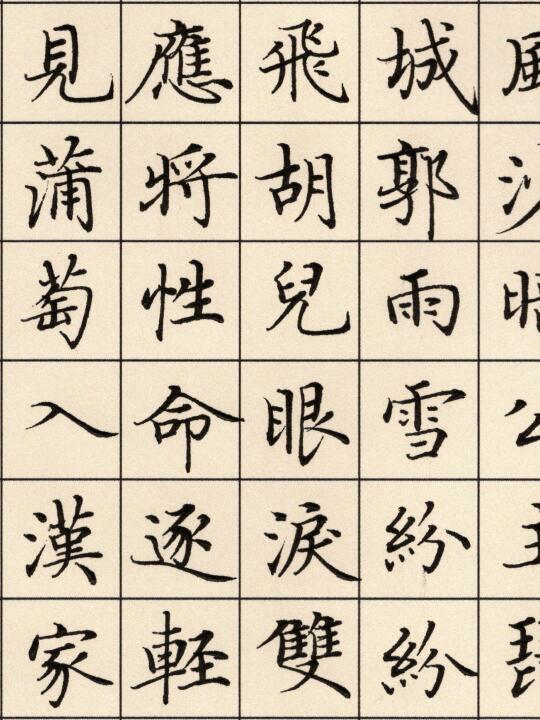 風沙暗公主琵
城郭雨雪紛紛
飛胡兒眼淚雙
應將性命逐輕
見蒲萄入漢家